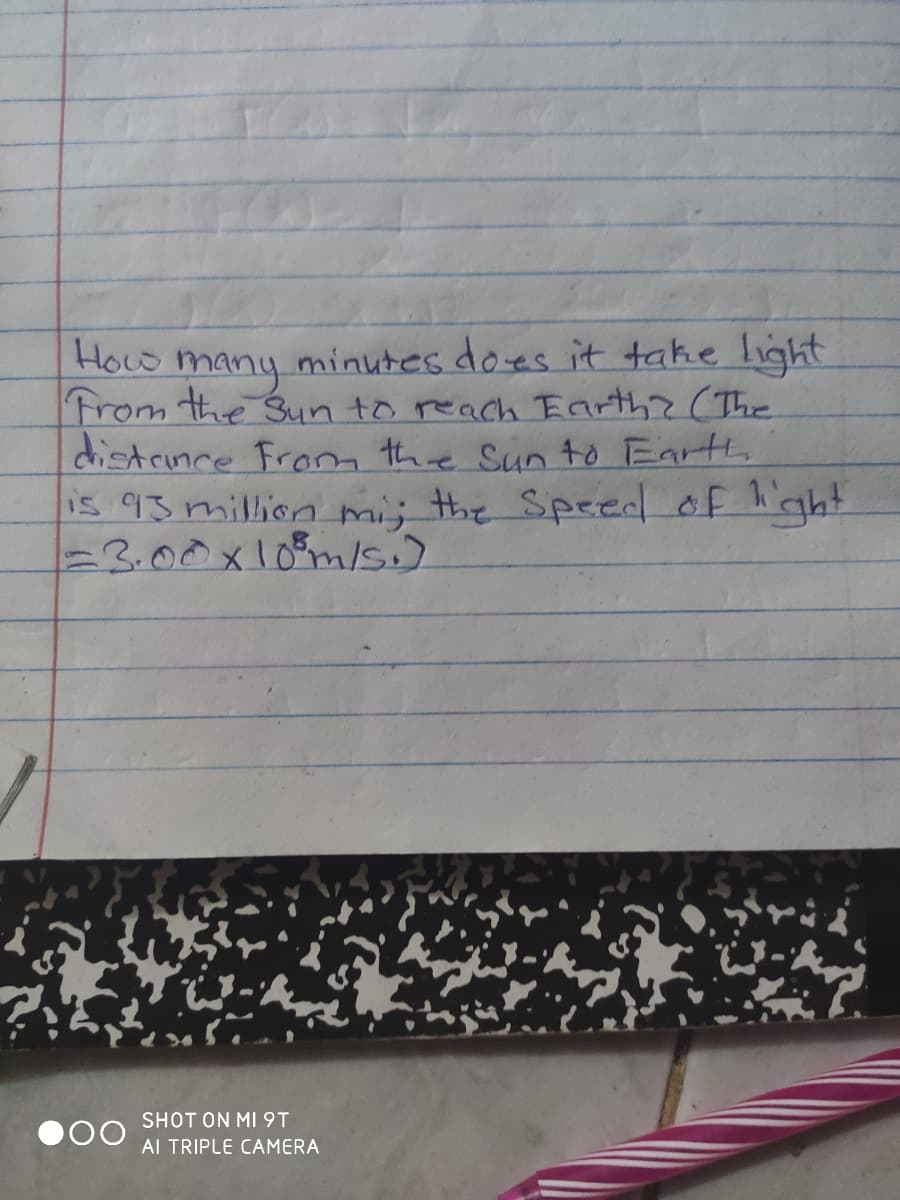 How many minutes does it take light
From the Sun to reach Earth? (The
distance From the Sun to Earth
is 93 million mi; the Speed of light
=3.00 x 10⁸m/s.)
SHOT ON MI 9T
AI TRIPLE CAMERA